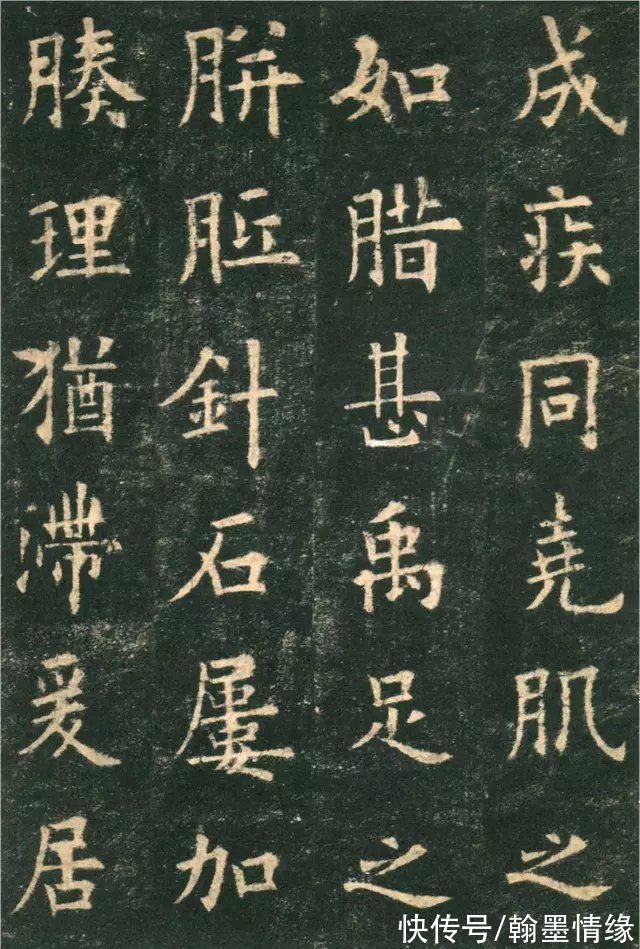 成疾同堯肌之
如腊甚禹足之
胼胝針石屢加
腠理猶滯爰居
快传号/翰墨情缘